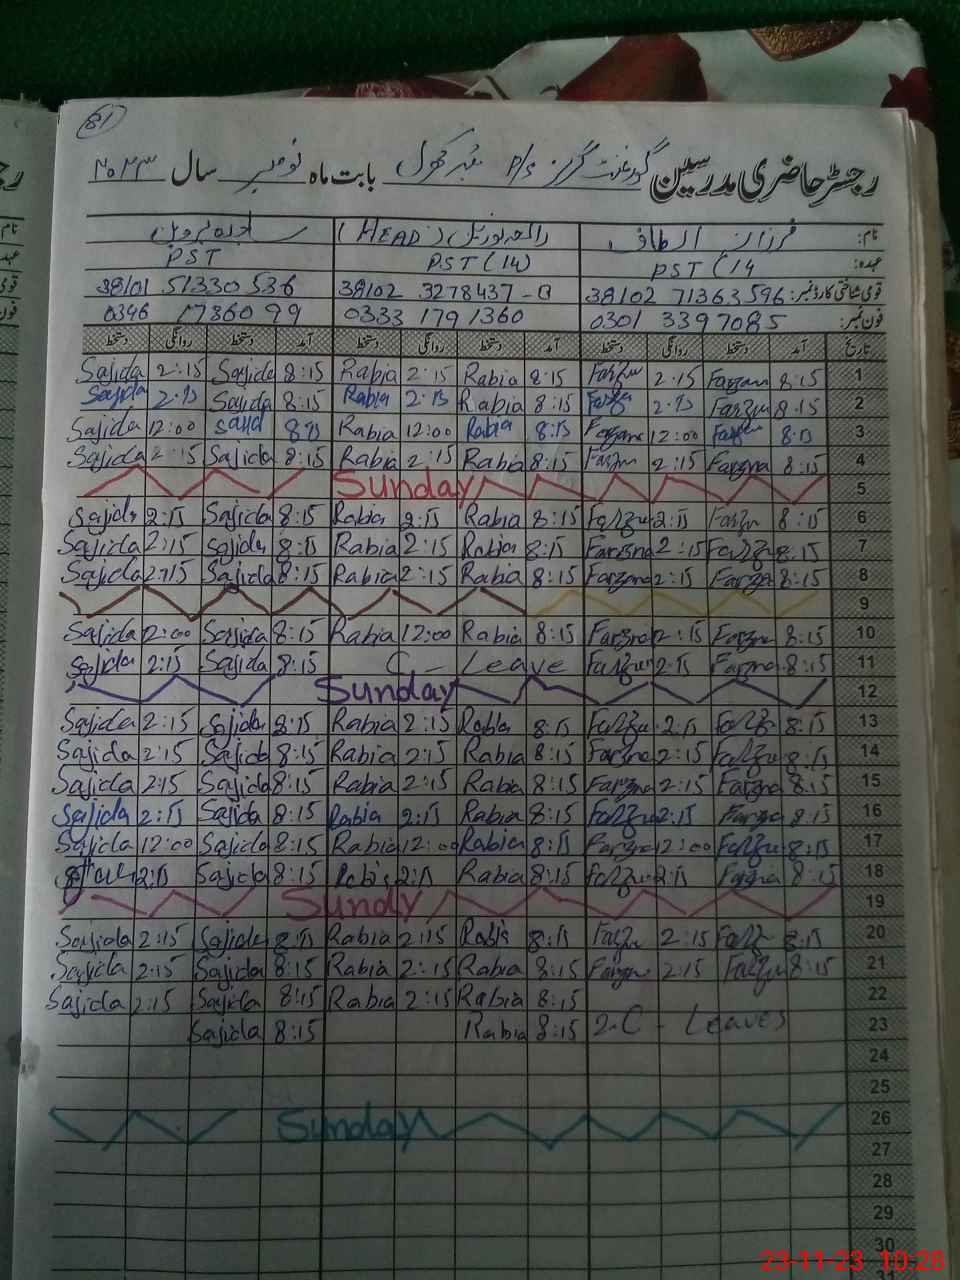 81
رجسٹر حاضری مدرسین گورنمنٹ گرلز P/S بابت ماہ نومبر سال ۲۰۲۳
نام: فرزانہ الطاف (HEAD) ساجدہ پروین
عہدہ: PST (14 PST (14) PST
قومی شناختی کارڈ نمبر: 38102 71363596 38102 3278437-0 38101 51330536
فون نمبر: 0301 3397085 0333 1791360 0346 1786099
تاریخ آمد دستخط روانگی دستخط آمد دستخط روانگی دستخط آمد دستخط روانگی دستخط
Sajida 2:15 Sajida 8:15 Rabia 2:15 Rabia 8:15 Farznu 2:15 Farzana 8:15 1
Sajida 2:15 Sajida 8:15 Rabia 2:15 Rabia 8:15 Farzna 2:15 Farznu 8:15 2
Sajida 12:00 Sajid 8:15 Rabia 12:00 Rabia 8:15 Farzana 12:00 Farzna 8:15 3
Sajida 2:15 Sajida 8:15 Rabia 2:15 Rabia 8:15 Farznu 2:15 Farzna 8:15 4
Sunday 5
Sajida 2:15 Sajida 8:15 Rabia 2:15 Rabia 8:15 Farznu 2:15 Farznu 8:15 6
Sajida 2:15 Sajida 8:15 Rabia 2:15 Rabia 8:15 Farzna 2:15 Farznu 8:15 7
Sajida 2:15 Sajida 8:15 Rabia 2:15 Rabia 8:15 Farzna 2:15 Farzna 8:15 8
9
Sajida 12:00 Sajida 8:15 Rabia 12:00 Rabia 8:15 Farzna 2:15 Farzna 8:15 10
Sajida 2:15 Sajida 8:15 C - Leave Farznu 2:15 Farzna 8:15 11
Sunday 12
Sajida 2:15 Sajida 8:15 Rabia 2:15 Rabia 8:15 Farznu 2:15 Farzna 8:15 13
Sajida 2:15 Sajida 8:15 Rabia 2:15 Rabia 8:15 Farzna 2:15 Farznu 8:15 14
Sajida 2:15 Sajida 8:15 Rabia 2:15 Rabia 8:15 Farzna 2:15 Farzna 8:15 15
Sajida 2:15 Sajida 8:15 Rabia 2:15 Rabia 8:15 Farznu 2:15 Farzna 8:15 16
Sajida 12:00 Sajida 8:15 Rabia 12:00 Rabia 8:15 Farzna 12:00 Farznu 8:15 17
2:15 Sajida 8:15 Rabia 2:15 Rabia 8:15 Farznu 2:15 Farzna 8:15 18
Sundy 19
Sajida 2:15 Sajida 8:15 Rabia 2:15 Rabia 8:15 Farznu 2:15 Farzna 8:15 20
Sajida 2:15 Sajida 8:15 Rabia 2:15 Rabia 8:15 Farzna 2:15 Farzna 8:15 21
Sajida 2:15 Sajida 8:15 Rabia 2:15 Rabia 8:15 22
Sajida 8:15 Rabia 8:15 2.C - Leaves 23
24
25
Sunday 26
27
28
29
30
23-11-23 10:28